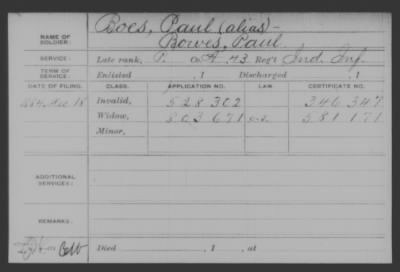 Boes, Paul (alias)-
NAME OF SOLDIER: Bowes, Paul.
SERVICE: Late rank, P. Co. A. 43 Reg't Ind. Inf.
TERM OF SERVICE: Enlisted , 1 Discharged , 1
DATE OF FILING. CLASS. APPLICATION NO. LAW. CERTIFICATE NO.
1884, Dec 18 Invalid, 528 302 346 347
Widow, 803 671 581 171
Minor,
ADDITIONAL SERVICES:
REMARKS:
Died , 1 , at